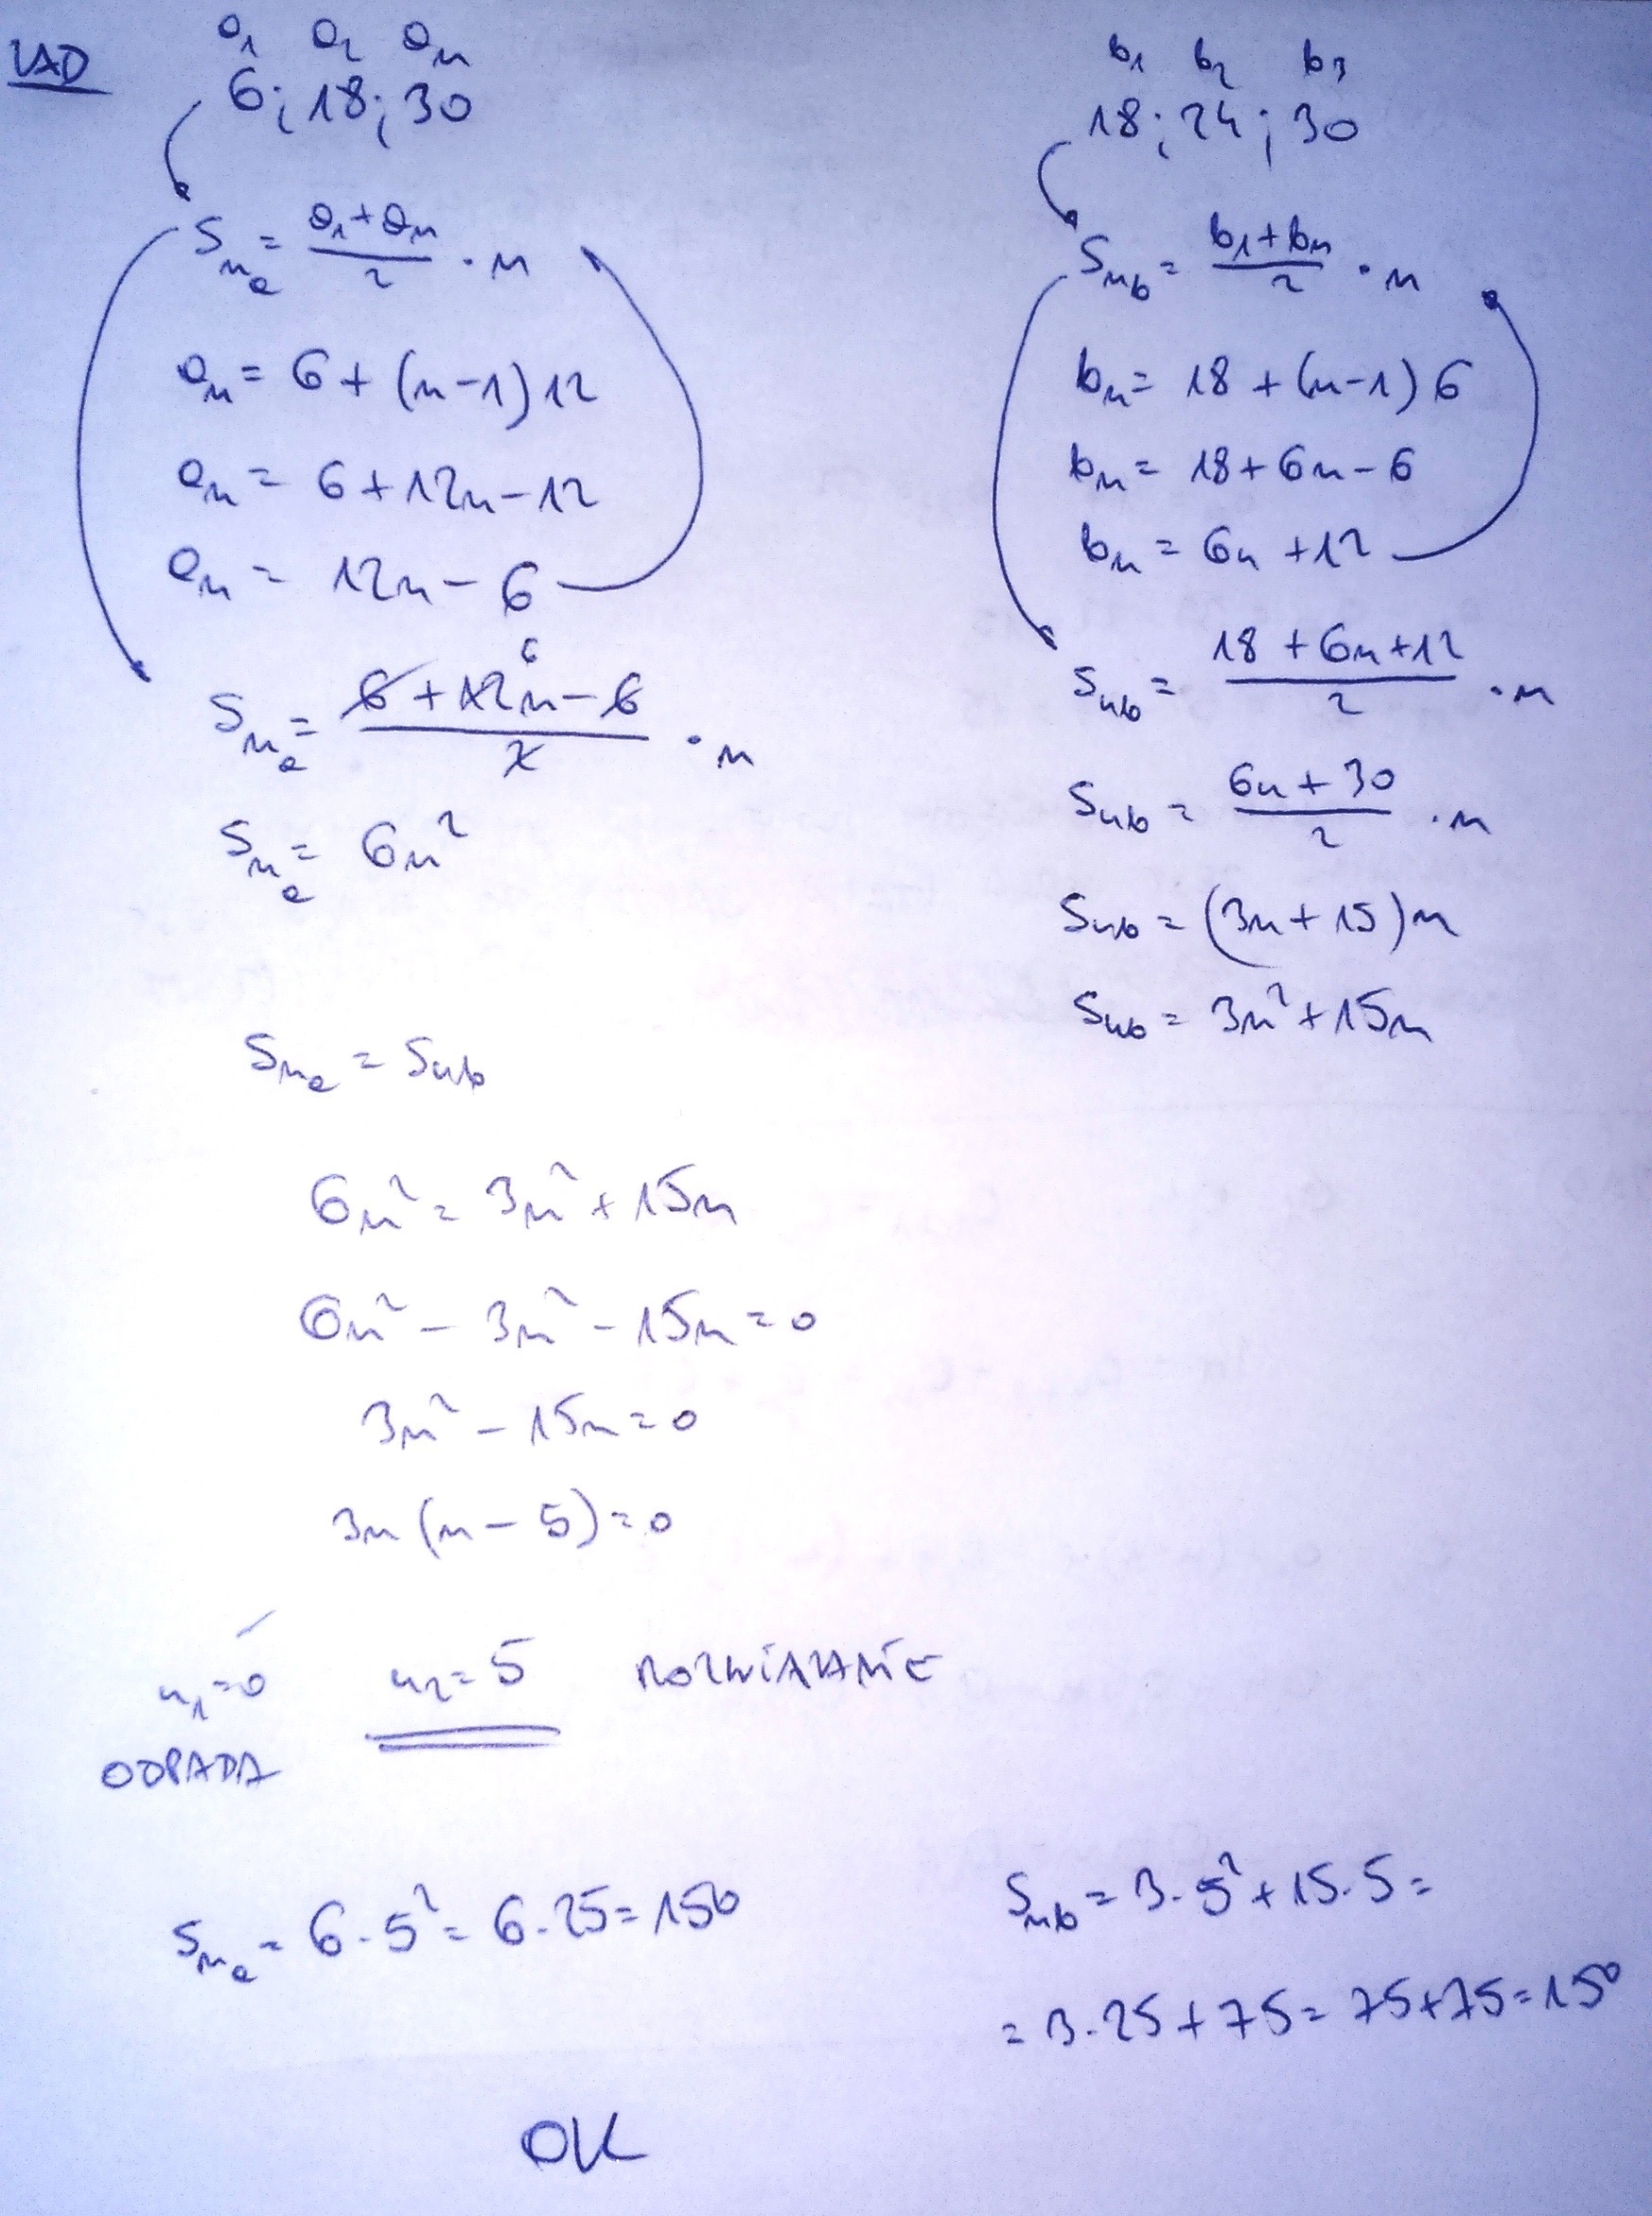 ZAD
a₁ a₂ aₙ
6; 18; 30
Sₙₐ = (a₁+aₙ)/2 · n
aₙ = 6 + (n-1)12
aₙ = 6 + 12n - 12
aₙ = 12n - 6
6
Sₙₐ = (6 + 12n - 6)/2 · n
Sₙₐ = 6n²
b₁ b₂ b₃
18; 24; 30
Sₙb = (b₁+bₙ)/2 · n
bₙ = 18 + (n-1)6
bₙ = 18 + 6n - 6
bₙ = 6n + 12
Sₙb = (18 + 6n + 12)/2 · n
Sₙb = (6n + 30)/2 · n
Sₙb = (3n + 15)n
Sₙb = 3n² + 15n
Sₙₐ = Sₙb
6n² = 3n² + 15n
6n² - 3n² - 15n = 0
3n² - 15n = 0
3n(n - 5) = 0
n₁=0 n₂=5 ROZWIĄZANIE
ODPADA
Sₙₐ = 6·5² = 6·25 = 150
Sₙb = 3·5² + 15·5 =
= 3·25 + 75 = 75+75 = 150
OK